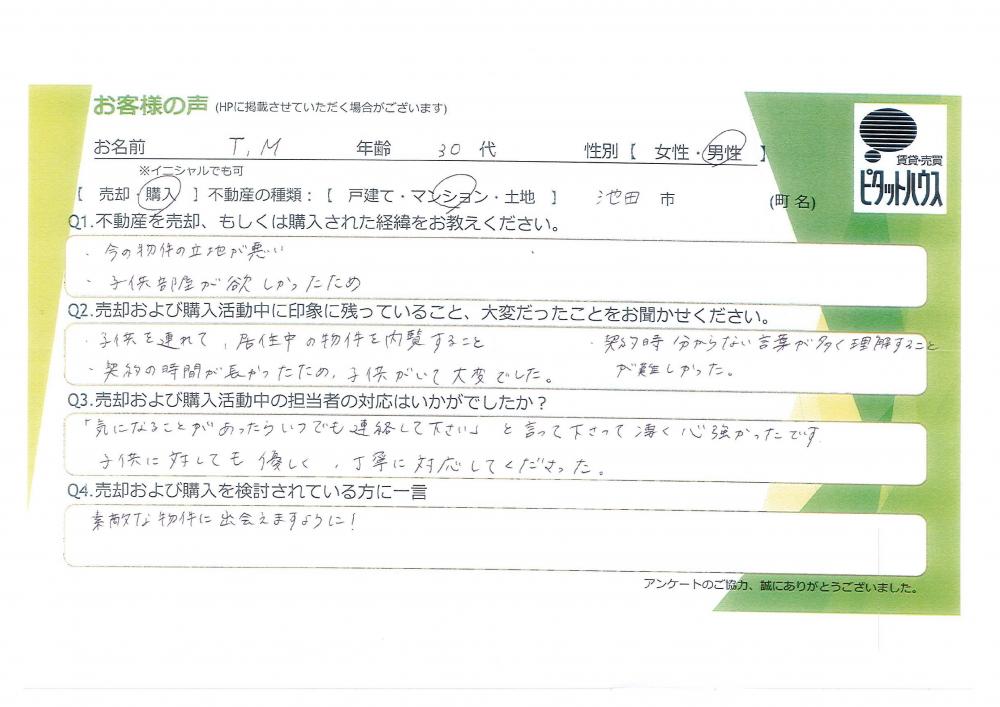 お客様の声 (HPに掲載させていただく場合がございます)
お名前 T.M 年齢 30 代 性別【 女性・男性 】
※イニシャルでも可
【 売却・購入 】不動産の種類：【 戸建て・マンション・土地 】 池田 市 (町名)
賃貸・売買
ピタットハウス
Q1.不動産を売却、もしくは購入された経緯をお教えください。
・今の物件の立地が悪い
・子供部屋が欲しかったため
Q2.売却および購入活動中に印象に残っていること、大変だったことをお聞かせください。
・子供を連れて、居住中の物件を内覧すること
・契約の時間が長かったため、子供がいて大変でした。
・契約時分からない言葉が多く理解すること
が難しかった。
Q3.売却および購入活動中の担当者の対応はいかがでしたか？
「気になることがあったらいつでも連絡して下さい」と言って下さって凄く心強かったです
子供に対しても優しく、丁寧に対応してくださった。
Q4.売却および購入を検討されている方に一言
素敵な物件に出会えますように！
アンケートのご協力、誠にありがとうございました。